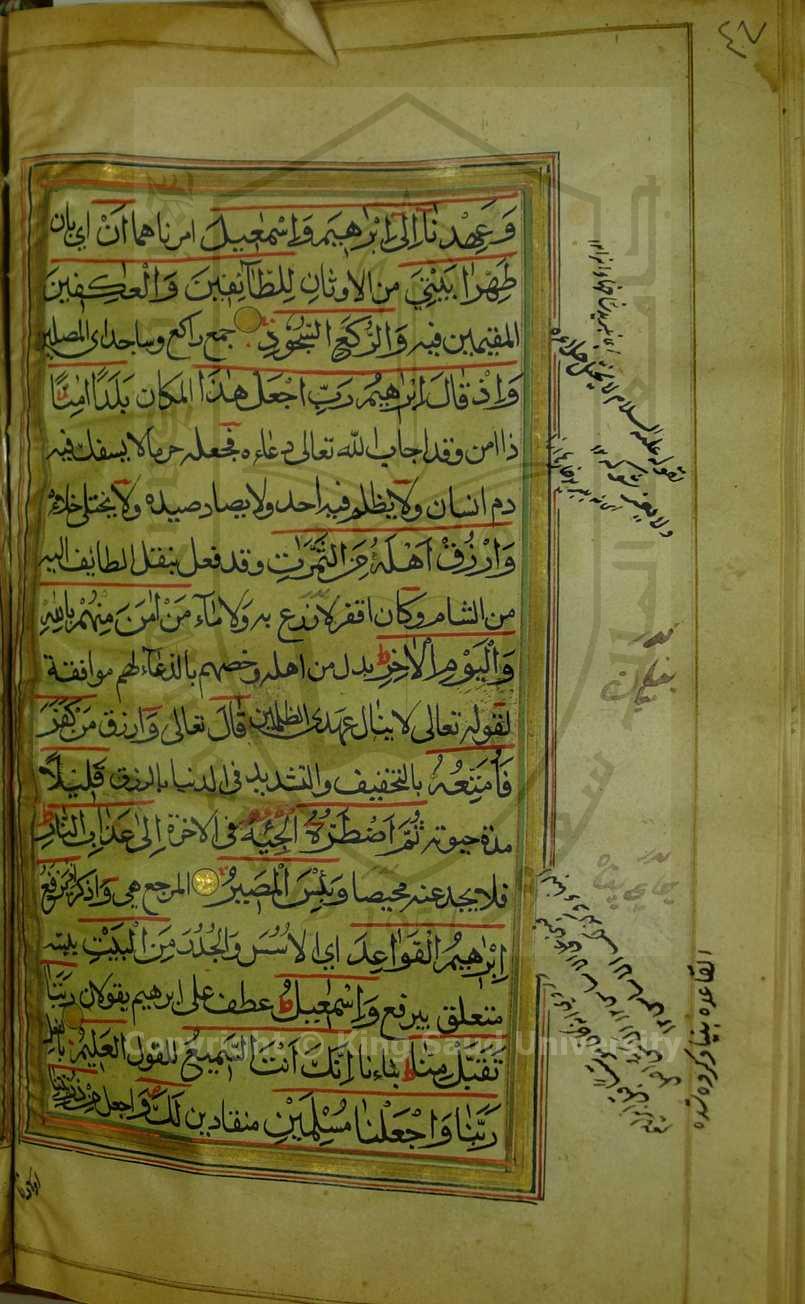 ٤٧
وَعَهِدْنَآ اِلىٰٓ اِبْرٰهِيمَ وَاِسْمٰعِيلَ امرناهما اَنْ اي بان
طَهِّرٰا بَيْتِيَ من الاوثان لِلطَّآئِفِينَ وَالْعٰكِفِينَ
المقيمين فيه وَالرُّكَّعِ السُّجُودِ جمع راكع وساجد اي المصلين
وَاِذْ قَالَ اِبْرٰهِيمُ رَبِّ اجْعَلْ هٰذَا المكان بَلَدًا اٰمِنًا
ذا امن وقد اجاب الله تعالى دعاءه فجعله حرما لا يسفك فيه
دم انسان ولا يظلم فيه احد ولا يصاد صيده ولا يختلى خلاه
وَارْزُقْ اَهْلَهُ مِنَ الثَّمَرٰتِ وقد فعل بنقل الطايف اليه
من الشام وكان اقفر لا زرع به ولا مآء مَنْ اٰمَنَ مِنْهُمْ بِاللّٰهِ
وَالْيَوْمِ الْاٰخِرِ بدل من اهله وخصهم بالدعآء لهم موافقة
لقوله تعالى لا ينال عهدي الظلمين قَالَ تعالى وَارزق مَنْ كَفَرَ
فَاُمَتِّعُهُ بالتخفيف والتشديد في الدنيا بالرزق قَلِيلًا
مدة حيوته ثُمَّ اَضْطَرُّهُ الجئه في الاخرة اِلىٰ عَذَابِ النَّارِ
فلا يجد عنه محيصا وَبِئْسَ الْمَصِيرُ المرجع هي وَاذكر اِذْ يَرْفَعُ
اِبْرٰهِيمُ الْقَوَاعِدَ اي الاُسُسَ وَالجُدُرَ مِنَ الْبَيْتِ يبنيه
متعلق بيرفع وَاِسْمٰعِيلُ عطف على ابرهيم يقولان رَبَّنَا
تَقَبَّلْ مِنَّا بناءنا اِنَّكَ اَنْتَ السَّمِيعُ للقول الْعَلِيمُ بالفعل
رَبَّنَا وَاجْعَلْنَا مُسْلِمَيْنِ منقادين لَكَ وَاجعل مِنْ ذُرِّيَّتِنَا
لقوله عليه السلام لا يختلى خلاه
القاعده بنياد كرده شده
Copyright © King Saud University